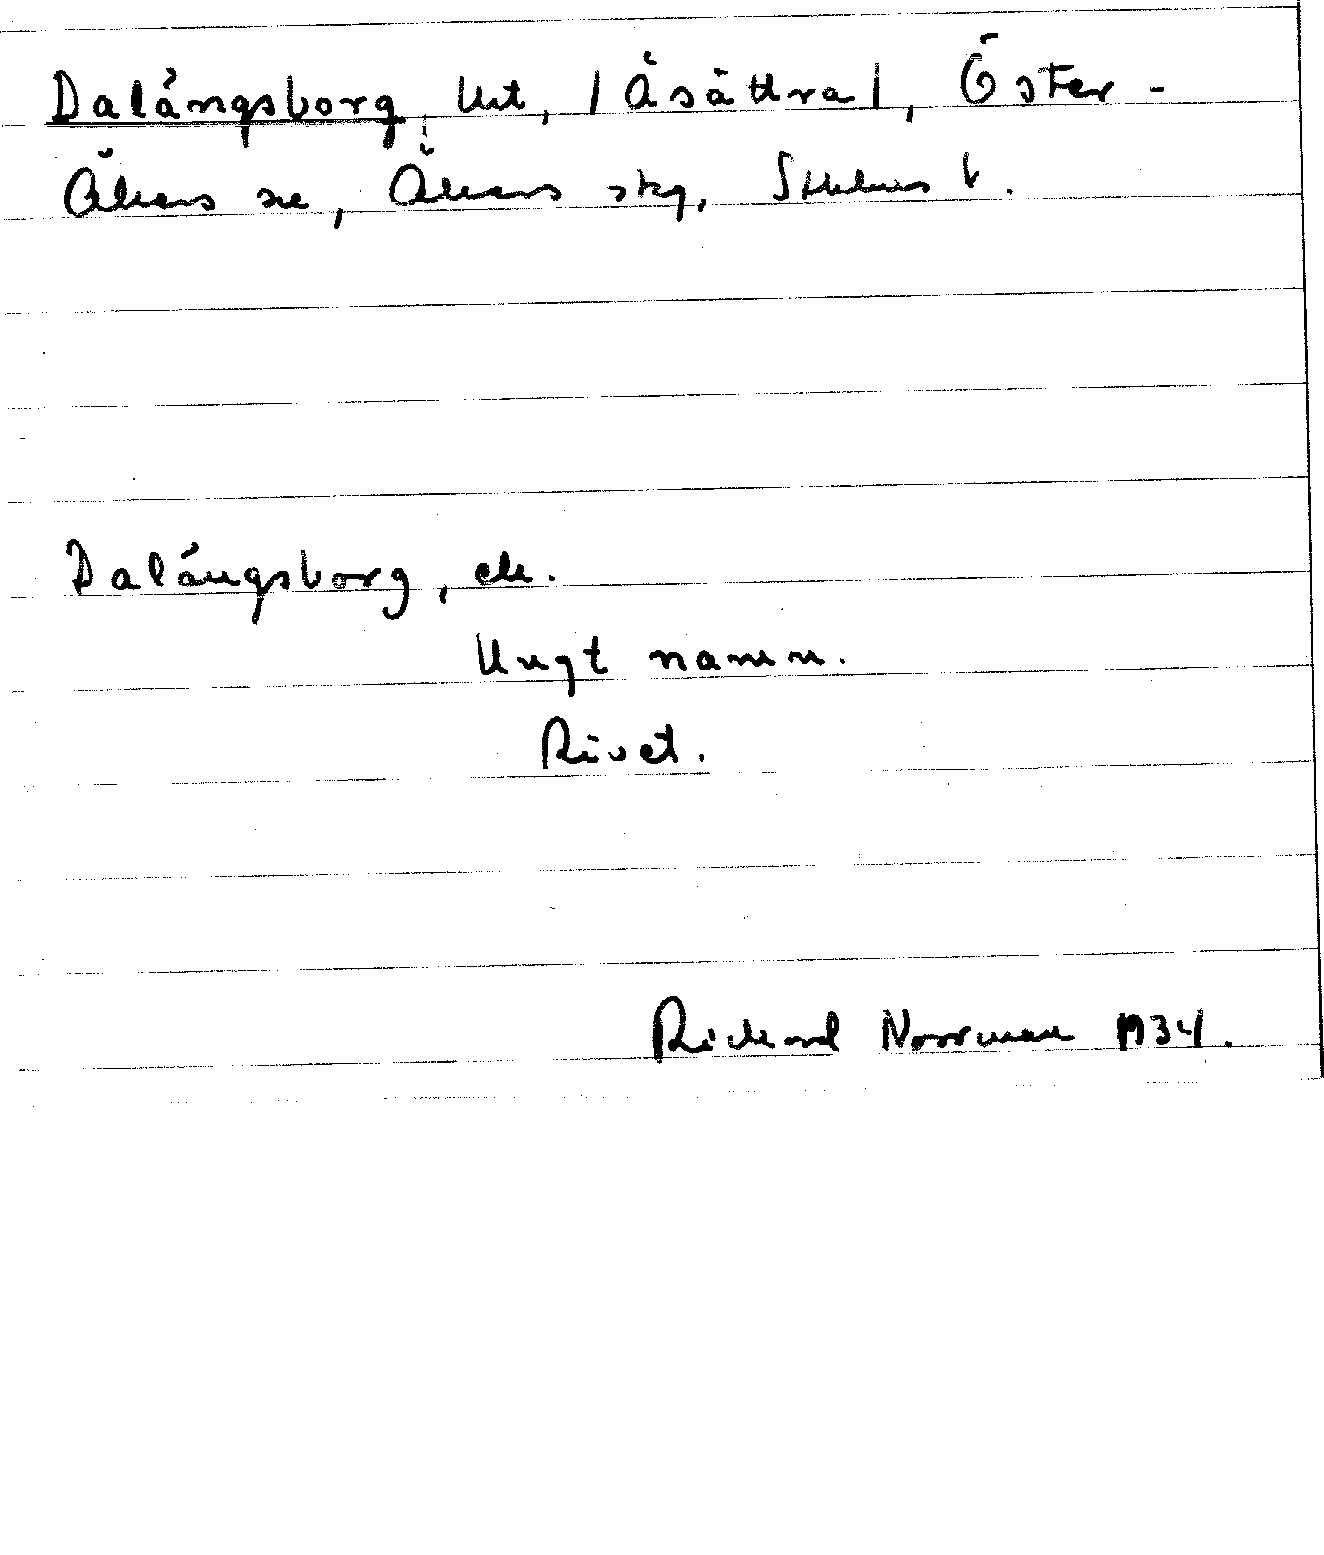 Dalängsborg, tnt, /Åsättra/, Öster-
Åkers sn, Åkers skg, Sthlms l.
Dalängsborg, ck.
Ungt namn.
Rivet.
Richard Norrman 1934.